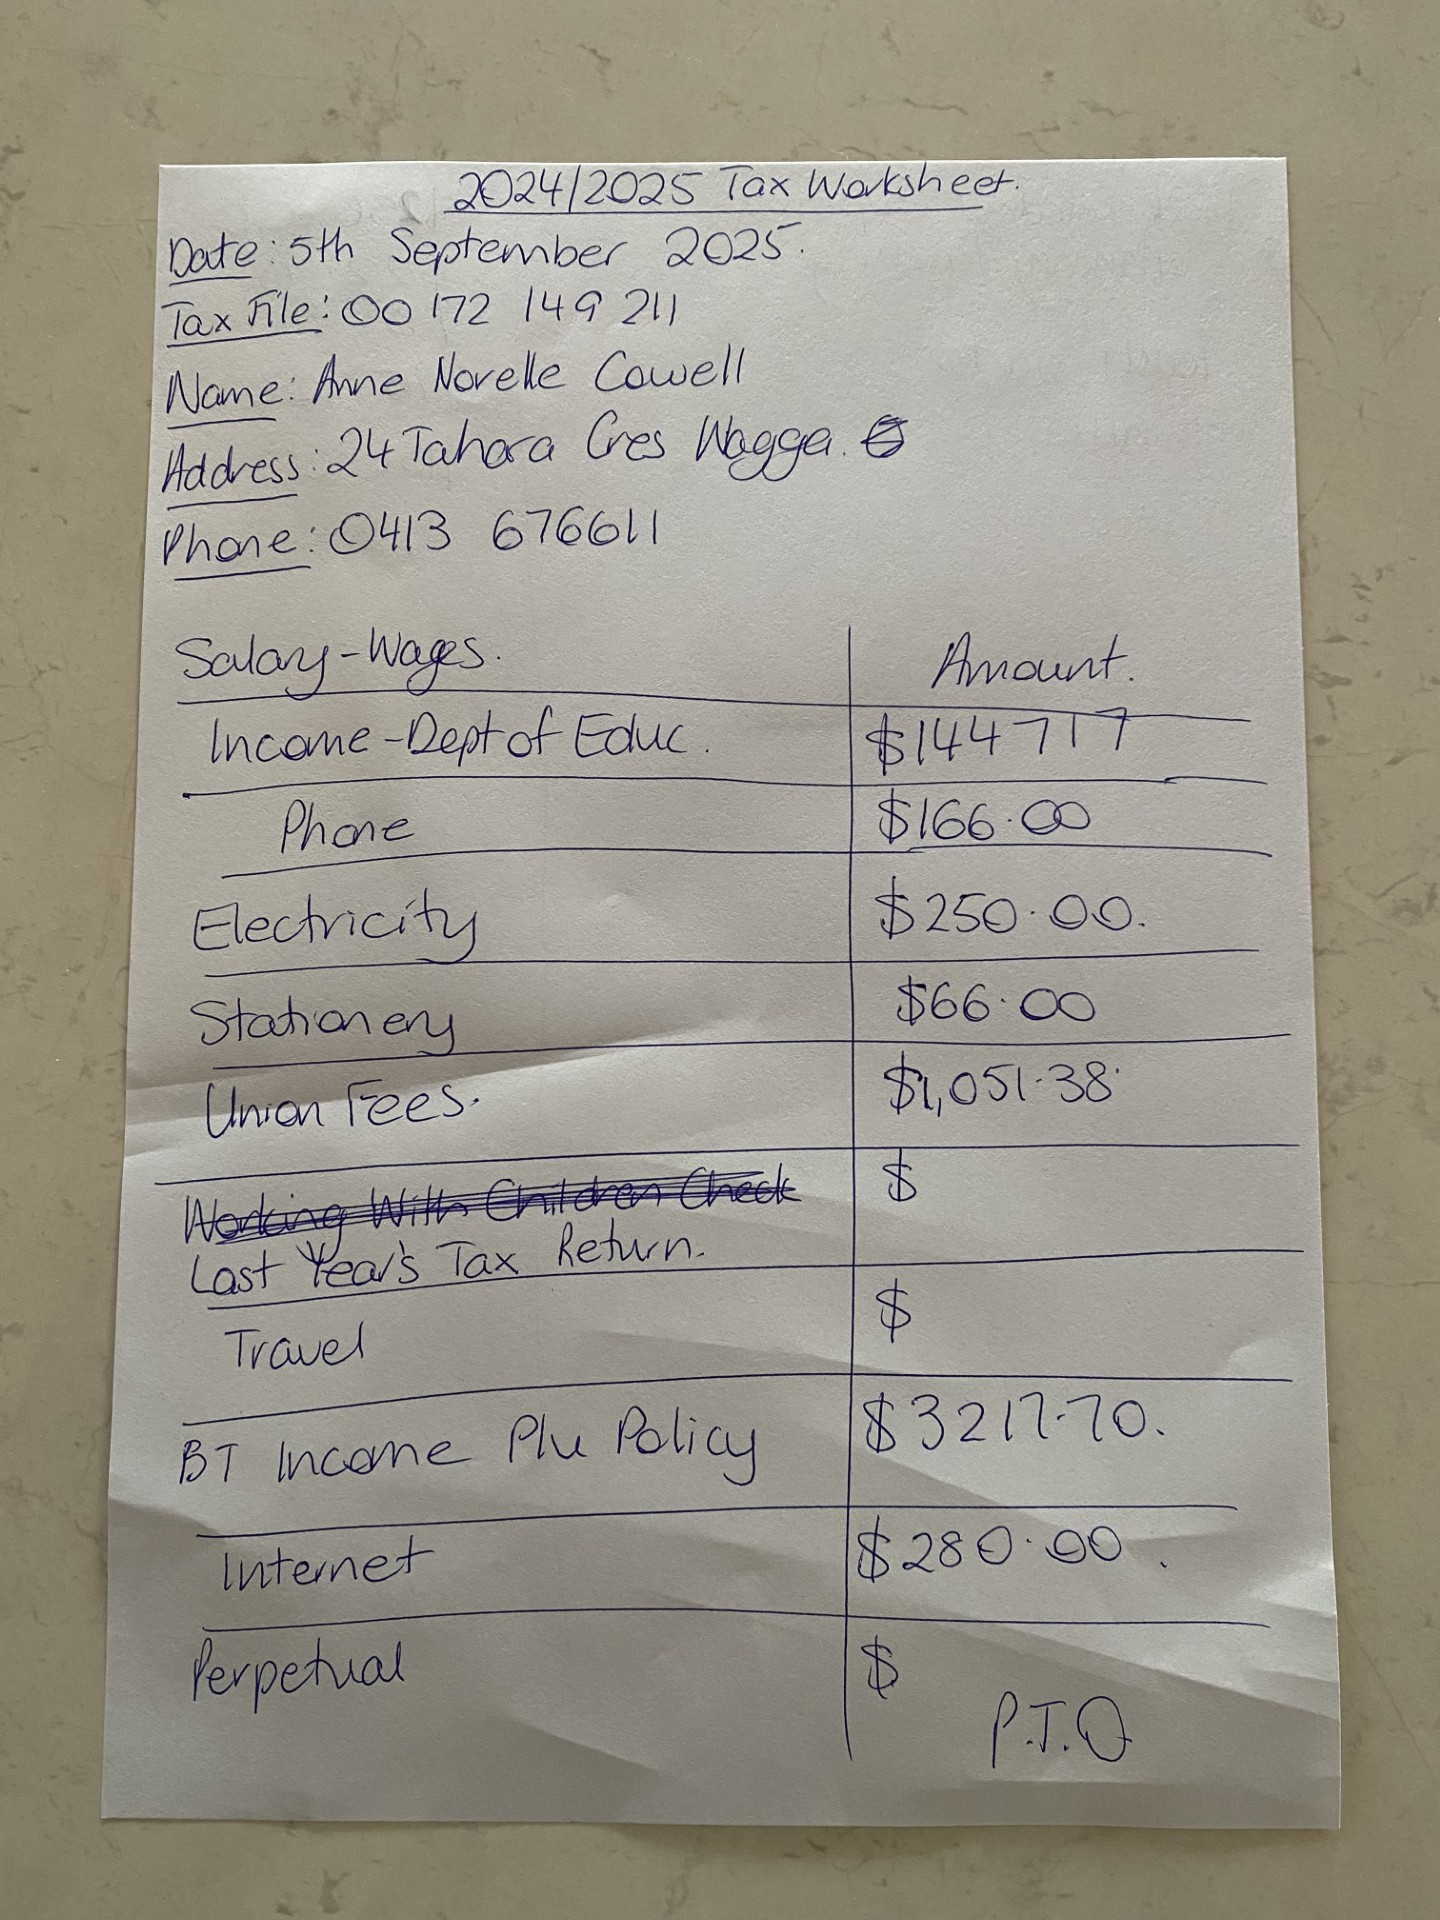 2024/2025 Tax Worksheet.
Date: 5th September 2025.
Tax File: 00 172 149 211
Name: Anne Norelle Cowell
Address: 24 Tahora Cres Wagga.
Phone: 0413 676611
Salary-Wages. Amount.
Income-Dept of Educ. $144717
Phone $166.00
Electricity $250.00.
Stationery $66.00
Union Fees. $1,051.38
Working With Children Check $
Last Year's Tax Return.
Travel $
BT Income Plu Policy $3217.70.
Internet $280.00.
Perpetual $
P.T.O